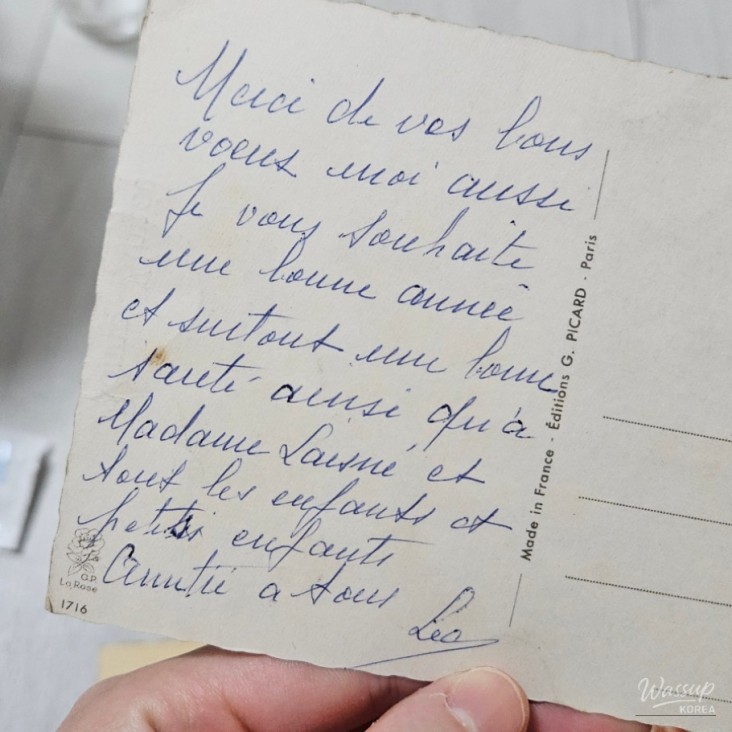 Merci de vos bons
voeux moi aussi
Je vous souhaite
une bonne année
et surtout une bonne
santé ainsi qu'à
Madame Laisné, et
tout les enfants et
petits enfants
Amitié a tous
Léo
Made in France - Éditions G. PICARD - Paris
O.P.
La Rose
1716
Wassup
KOREA